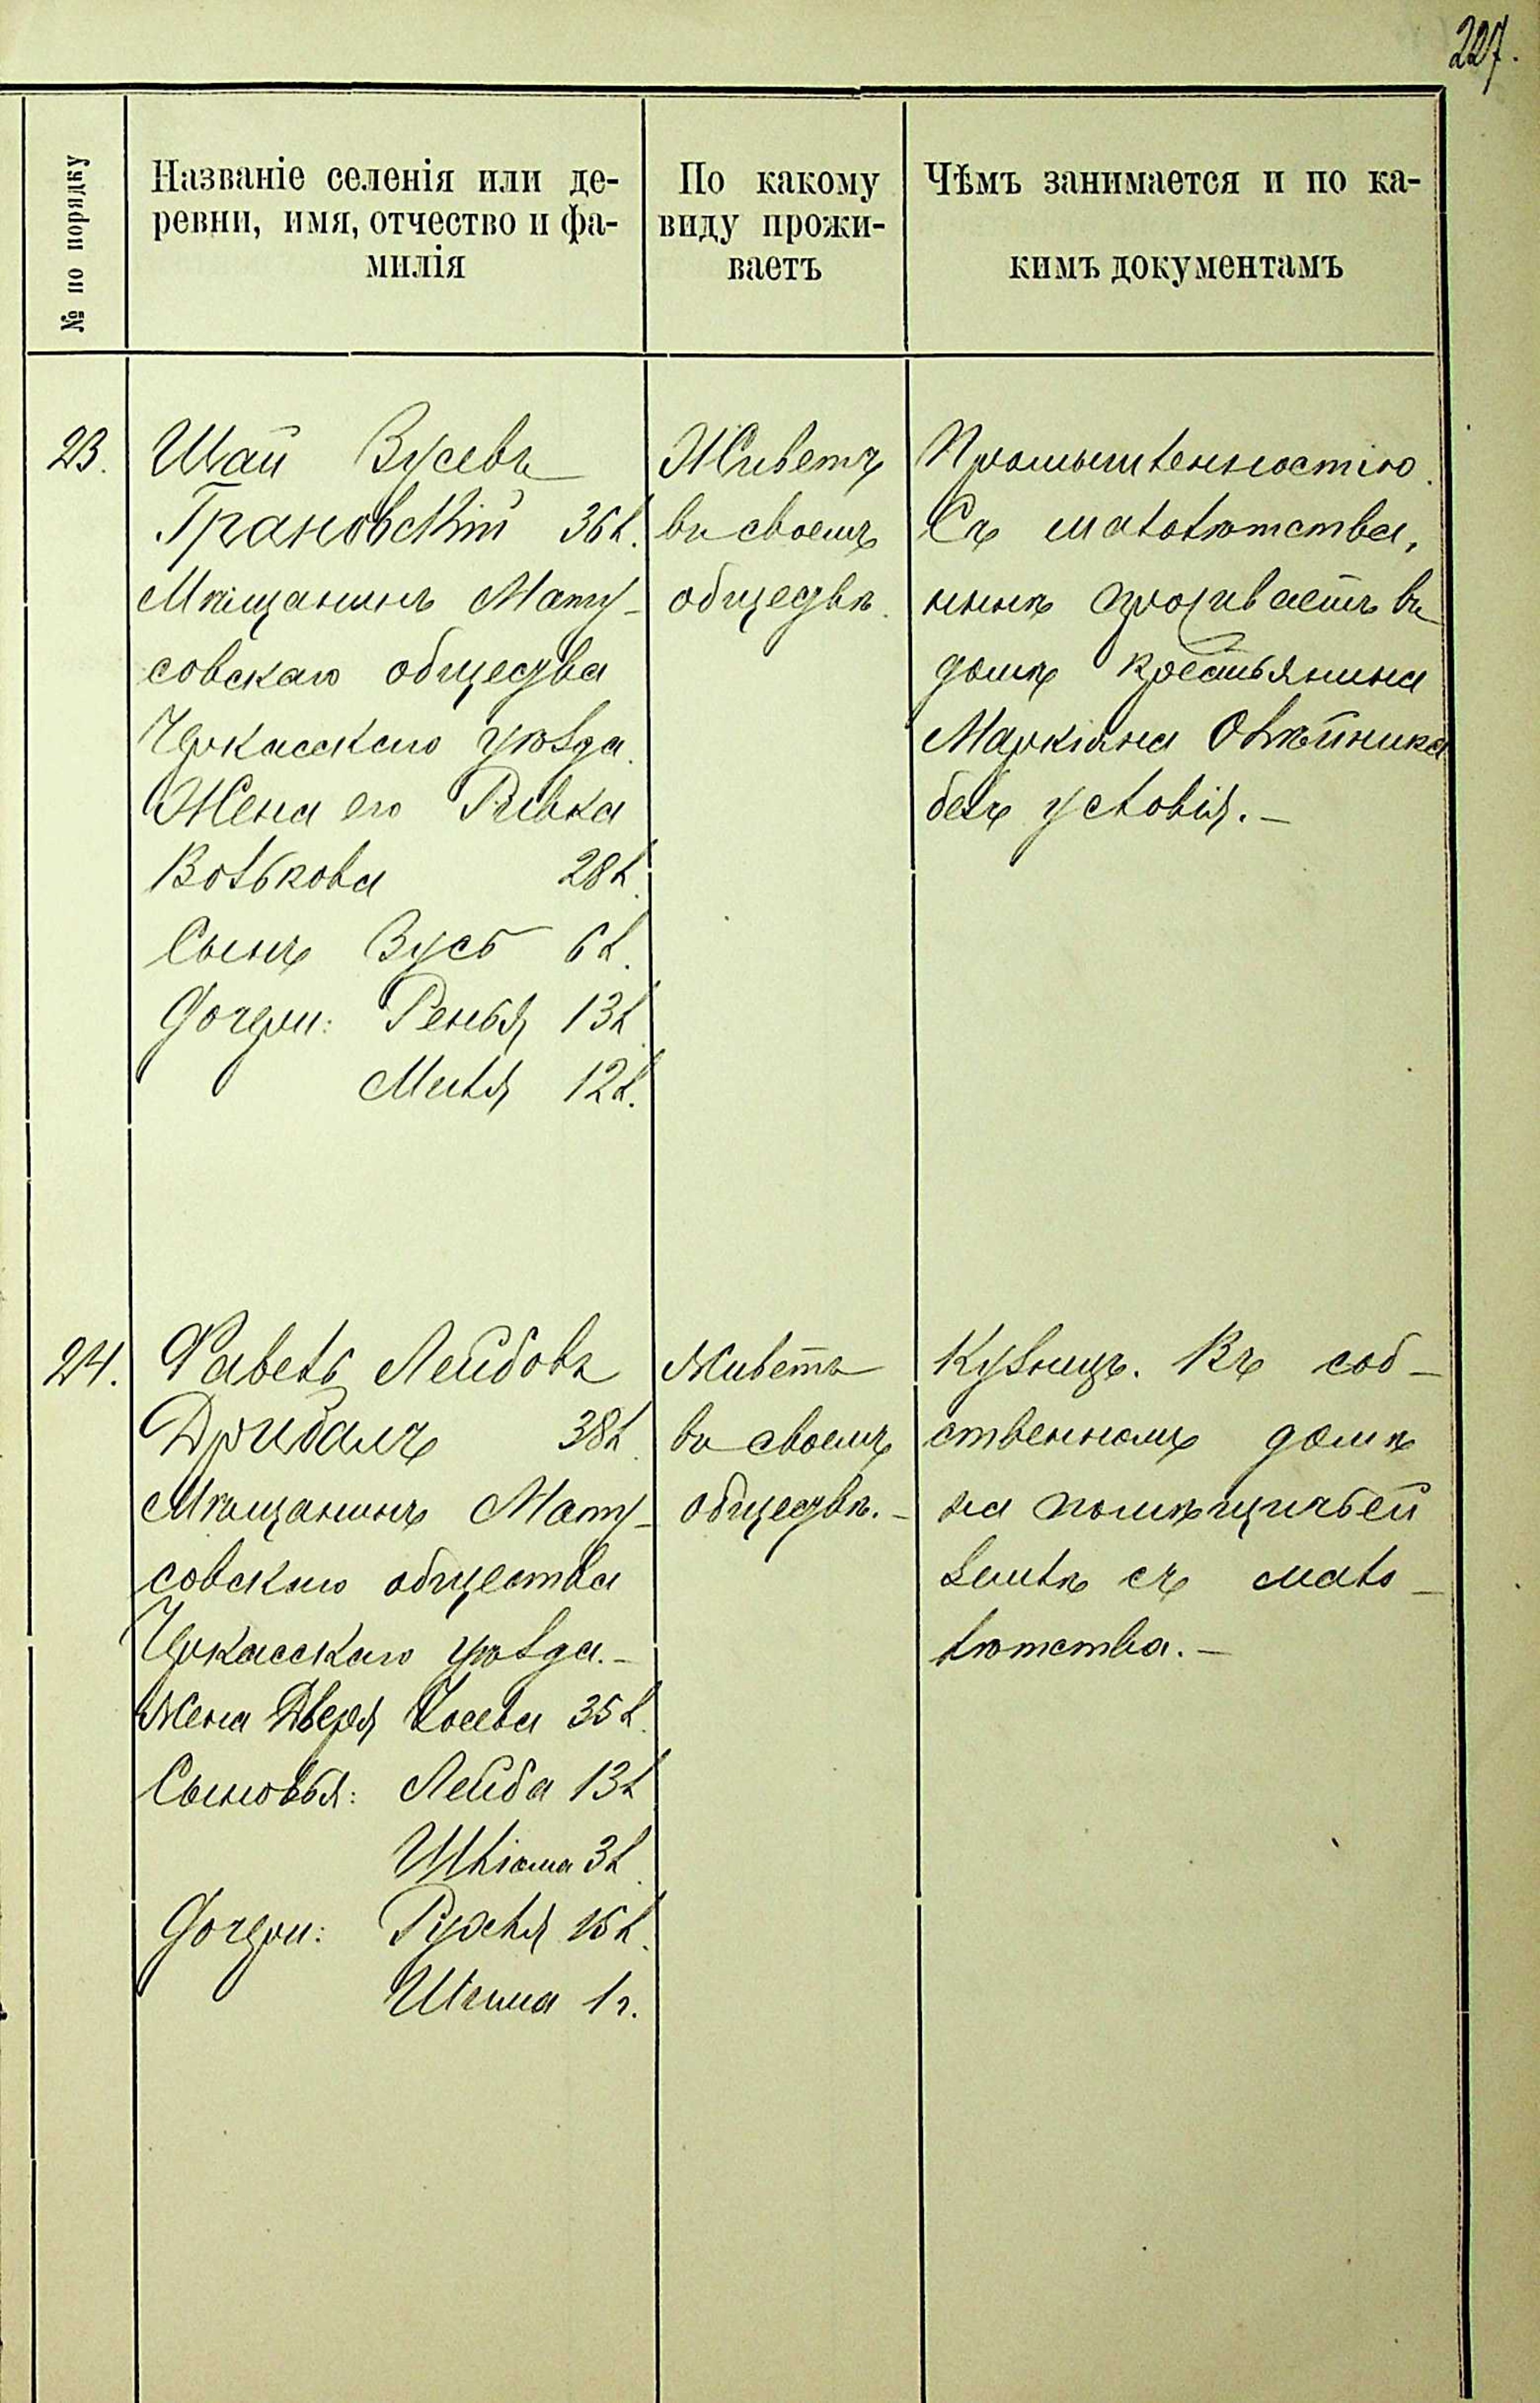 227.
№ по порядку
Названіе селенія или де-
ревни, имя, отчество и фа-
милія
По какому
виду прожи-
ваетъ
Чѣмъ занимается и по ка-
кимъ документамъ
23.
Шай Зусевъ
Грановскій 36 л.
Мѣщанинъ Мату-
совскаго общества
Черкасскаго уѣзда.
Жена его Ривка
Волькова 28 л.
Сынъ Зусь 6 л.
Дочери: Ренья 13 л.
Миля 12 л.
Живетъ
въ своемъ
обществѣ.
Промышленностію.
Съ малолѣтства,
нынѣ проживаетъ въ
домѣ крестьянина
Маркіана Олѣйника
безъ условія. —
24.
Фавель Лейбовъ
Дрибанъ 38 л.
Мѣщанинъ Мату-
совскаго общества
Черкасскаго уѣзда. —
Жена Двейя Іосева 35 л.
Сыновья: Лейба 13 л.
Шліома 3 л.
Дочери: Рухля 15 л.
Шчима 1 г.
Живетъ
въ своемъ
обществѣ. —
Кузнецъ. Въ соб-
ственномъ домѣ
на помѣщичьей
землѣ съ мало-
лѣтства. —